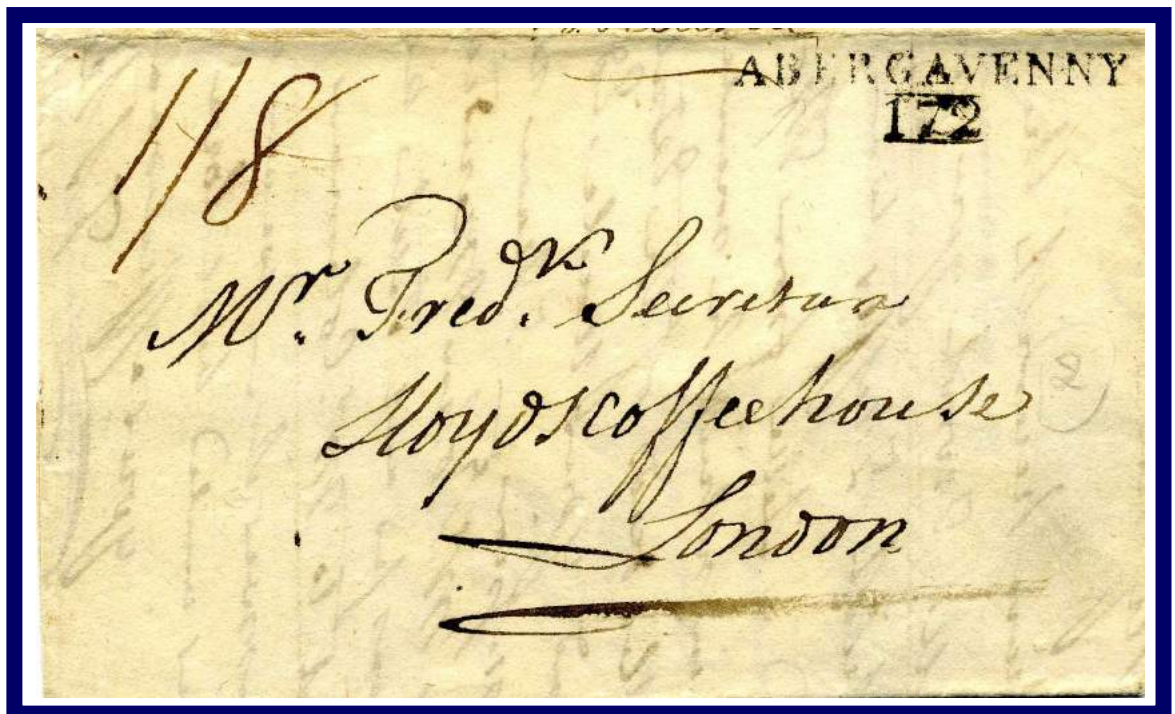 1/8
ABERGAVENNY
172
Mr. Fredk. Secretan
Lloyds coffeehouse
London
2